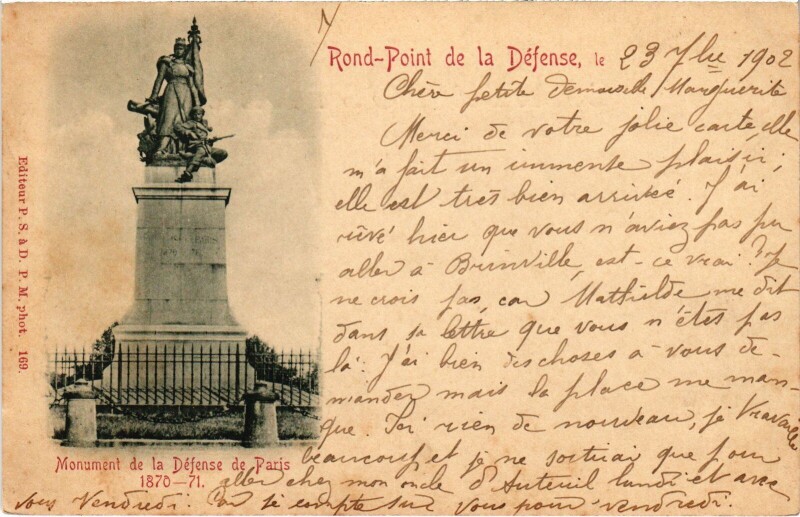 Rond-Point de la Défense, le 23 7bre 1902
Chère petite demoiselle Marguerite
Merci de votre jolie carte, elle
m'a fait un immense plaisir;
elle est très bien arrivée. J'ai
rêvé hier que vous n'aviez pas pu
aller à Brinville, est-ce vrai? Je
ne crois pas, car Mathilde me dit
dans sa lettre que vous n'êtes pas
là. J'ai bien des choses à vous de-
mander mais la place me man-
que. Ici rien de nouveau, je travaille
beaucoup et je ne sortirai que pour
aller chez mon oncle d'Auteuil lundi et avec
vous Vendredi. Car je compte sur vous pour vendredi.
Monument de la Défense de Paris
1870-71.
Editeur P. S. à D. P. M. phot. 169.